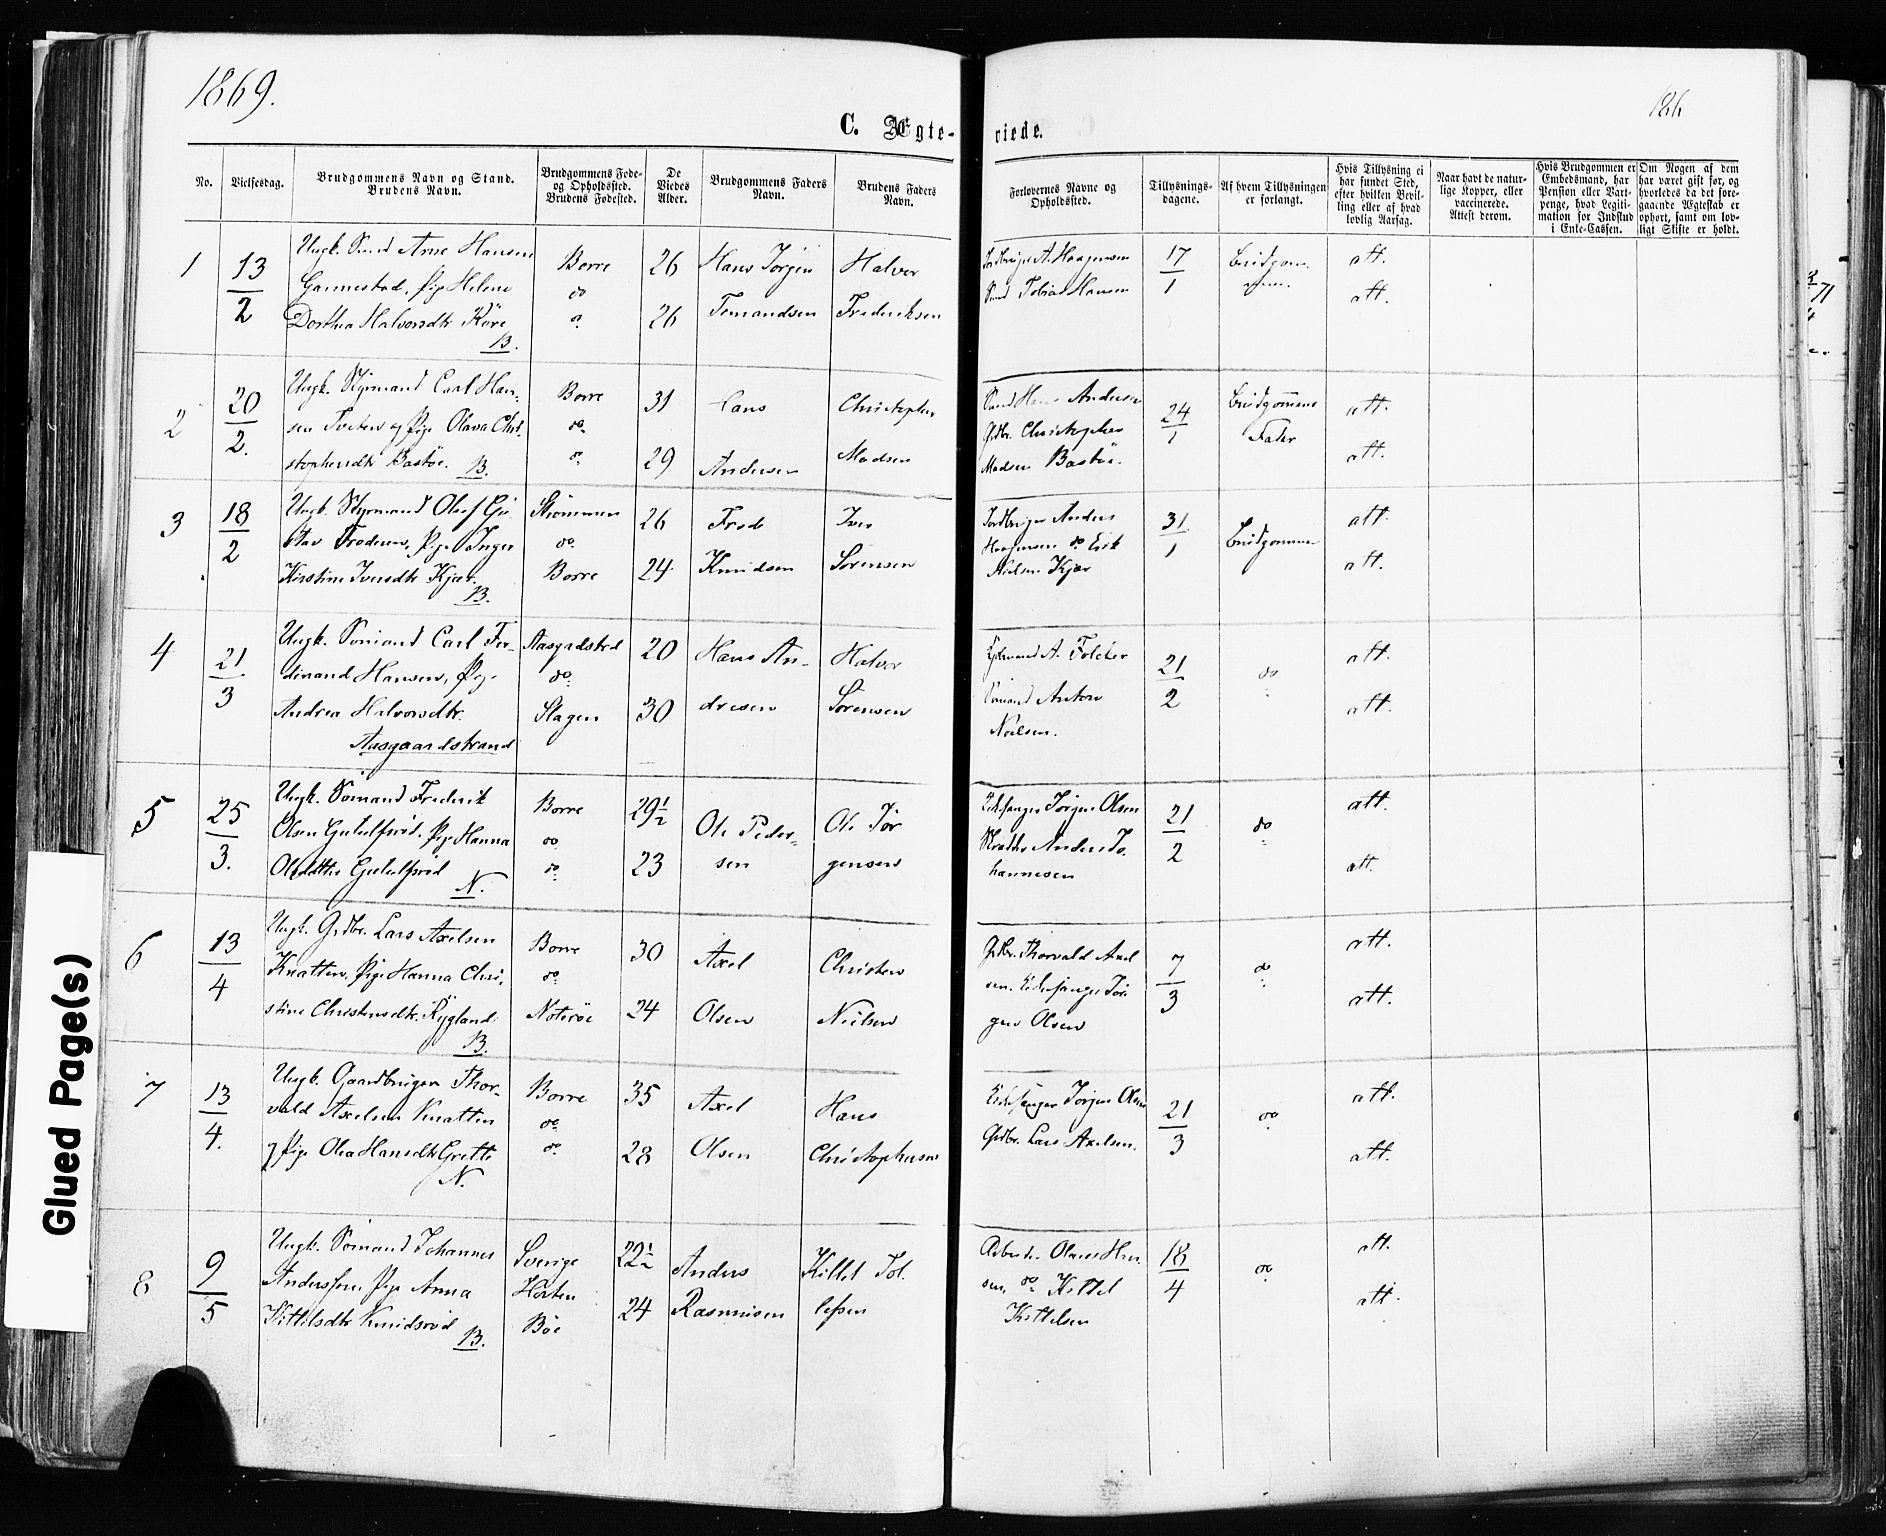 1869.
186
C. Ægte-
viede.
No.
Vielsesdag.
Brudgommens Navn og Stand.
Brudens Navn.
Brudgommens Føde-
og Opholdssted.
Brudens Fødested.
De
Viedes
Alder.
Brudgommens Faders
Navn.
Brudens Faders
Navn.
Forlovernes Navne og
Opholdssted.
Tillysnings-
dagene.
Af hvem Tillysningen
er forlangt.
Hvis Tillysning ei
har fundet Sted,
efter hvilken Bevil-
ling eller af hvad
lovlig Aarsag.
Naar havt de natur-
lige Kopper, eller
vaccinerede.
Attest derom.
Hvis Brudgommen er
Embedsmand, har
Pension eller Vart-
penge, hvad Legiti-
mation for Indskud
i Enke-Cassen.
Om Nogen af dem
har været gift før, og
hvorledes da det fore-
gaaende Ægteskab er
ophørt, samt om lov-
ligt Skifte er holdt.
1
13/2
Ungk. Arne Hansen
Gannestad, Pige Helene
Dorthea Halvorsdtr
B.
Borre
do
do
26
26
Hans Jørgen
Halvor
Frederiksen
A. Haagensen
Tobias Hansen
17/1
Brudgom-
att.
att.
2
20/2.
Ungk. Styrmand Carl Han-
sen Tveten og Pige Olava Chri-
stophersdtr Bastøe. B.
Borre
do
do
31
29
Hans
Andersen
Christopher
Madsen
Hans Andersen
Grdbr. Christopher
Madsen Bastøe.
24/1
Brudgommens
Fader
att.
att.
3
18/2
Ungk. Styrmand Oluf Gu-
stav Frodesen, Pige Inger
Kirstine Iversdtr Kjær.
B.
Strømmen
do
Borre
26
24
Frode
Knudsen
Iver
Sørensen
Jordbruger Anders
Haagensen do Erik
Nielsen Kjær
31/1
Brudgommen
att.
att.
4
21/3
Ungk. Sømand Carl Fer-
dinand Hansen, Pige
Andrea Halvorsdtr.
Aasgaardstrand
do
Slagen
20
30
Hans An-
dresen
Halvor
Sørensen
A. Folcker
Sømand Anton
Nielsen.
21/2
do
att.
att.
5
25/3.
Ungk. Sømand Frederik
Olsen, Pige Hanna
N.
Borre
do
do
29½
23
Ole Peder-
sen
Ole Jør
gensen
Kirkesanger Jørgen Olsen
Anders Jo-
hannesen
21/2
do
att.
att.
6
13/4
Ungk. Grdbr. Lars Axelsen
Knatten, Pige Hanna Chri-
stine Christensdtr. Rygland.
B.
Borre
do
Nøterøe
30
24
Axel
Olsen
Christen
Nielsen
Grdbr. Thorvald Axel
sen. Kirkesanger Jør
gen Olsen
7/3
do
att.
att.
7
13/4.
Ungk. Gaardbruger Thor-
vald Axelsen Knatten
og Pige Olea Hansdtr Grette
N.
Borre
do
do
35
28
Axel
Olsen
Hans
Christophersen
Kirkesanger Jørgen Olsen
Grdbr. Lars Axelsen.
21/3
do
att.
att.
8
9/5
Ungk. Sømand Johannes
Andersson, Pige Anna
Kittilsdtr Knudsrød
B.
Sverige
Horten
Bøe
22½
24
Anders
Rasmusen
Kittel Tol-
lefsen
Olaus Han-
sen, do Kittel
Kittelsen
18/4
do
att.
att.
Glued Page(s)